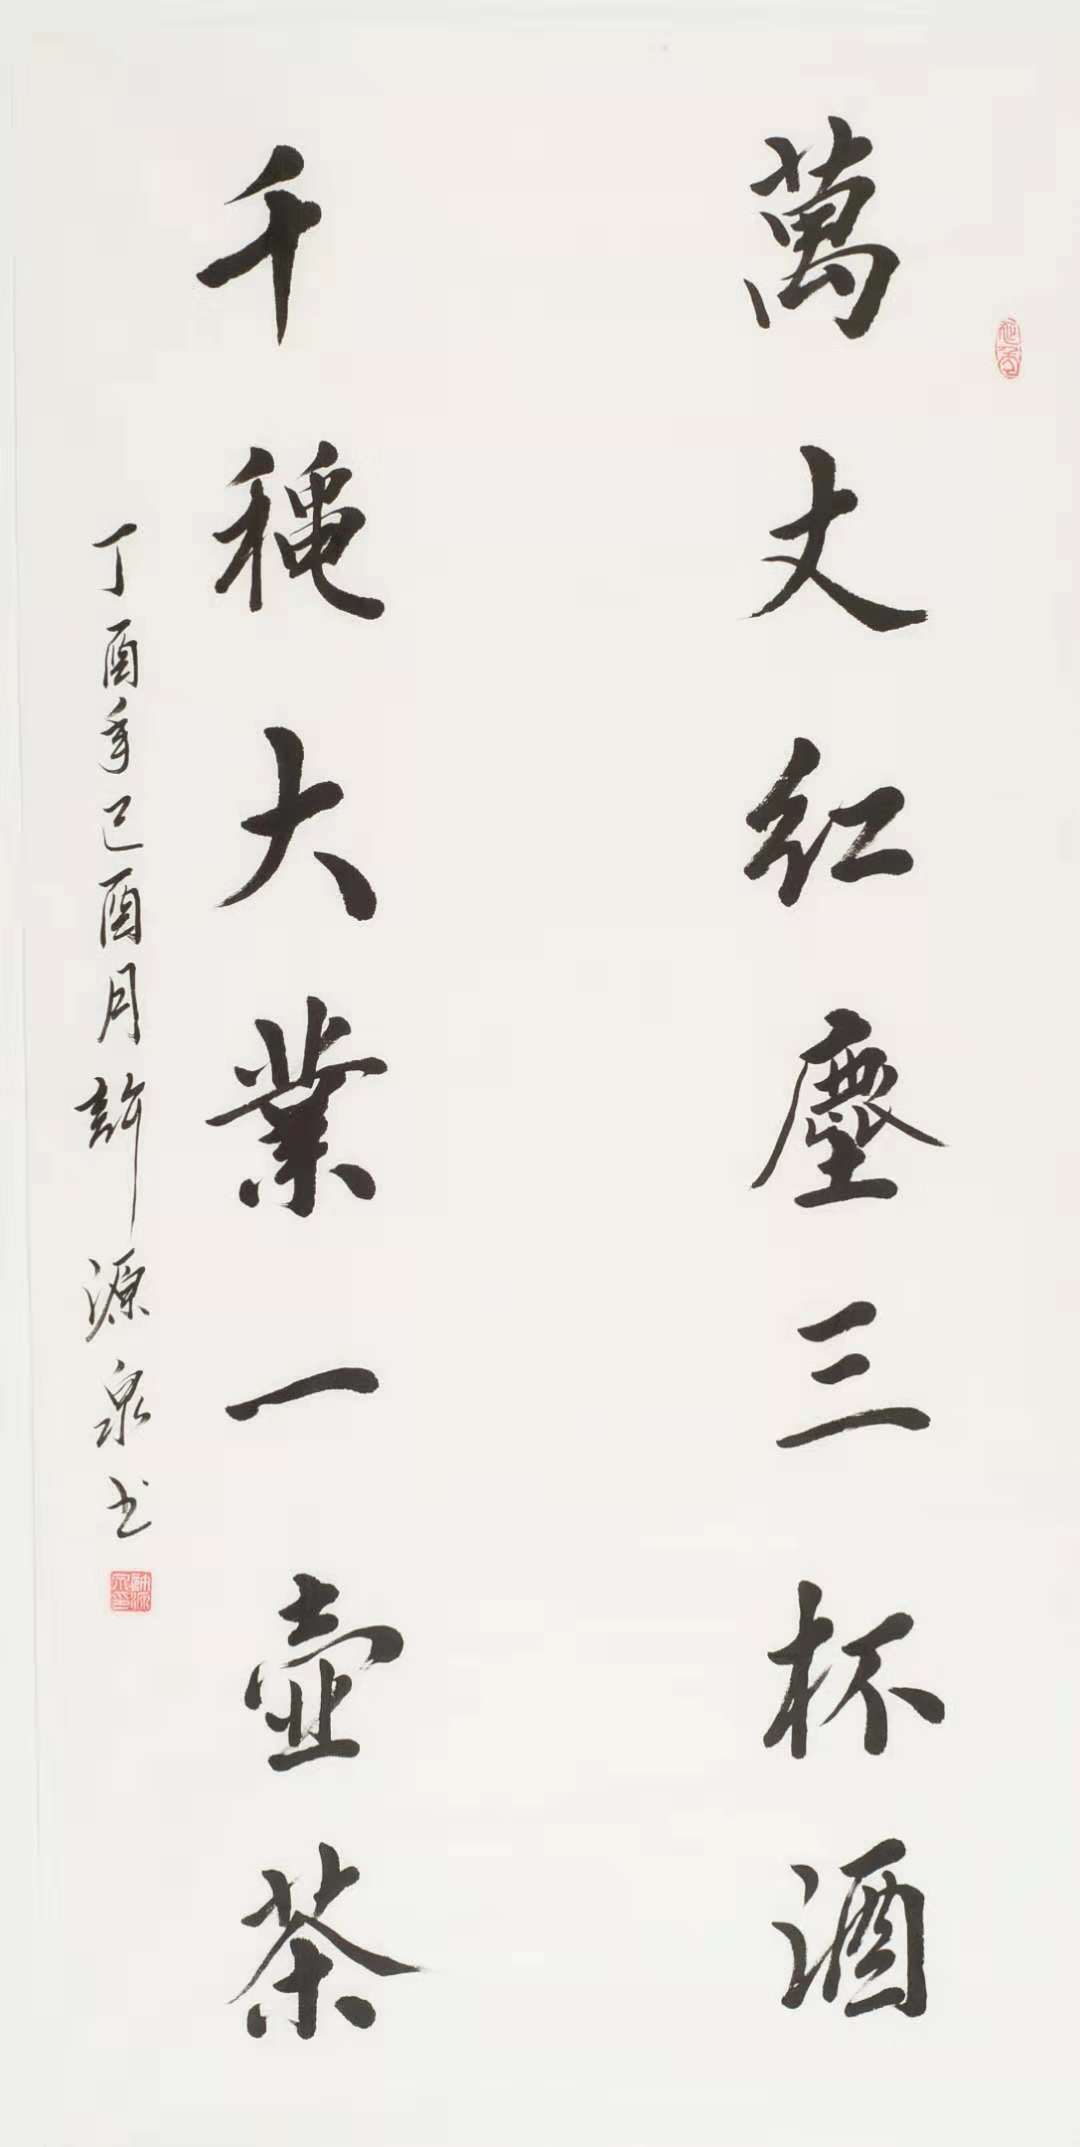 萬丈红塵三杯酒
千穐大業一壶茶
丁酉年己酉月許源泉书